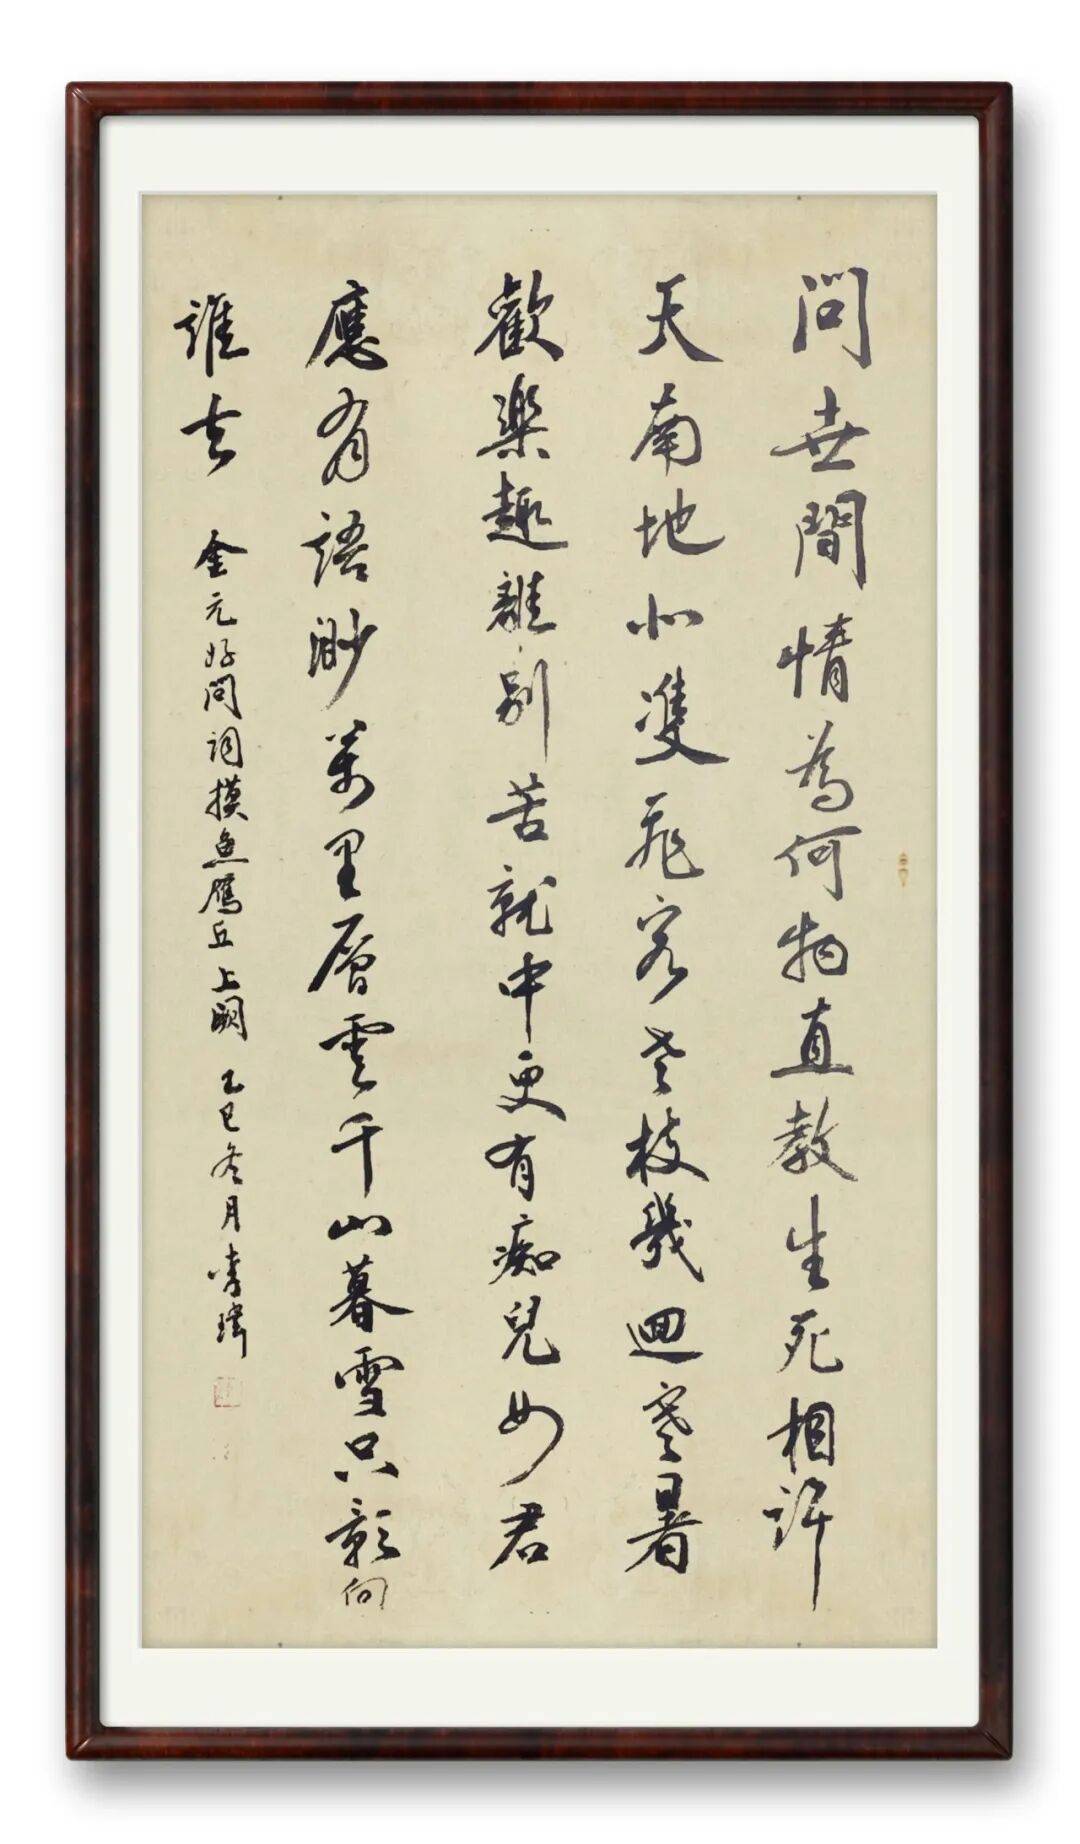 問世間情為何物直教生死相許
天南地北雙飛客老枝幾迴寒暑
歡樂趣離別苦就中更有痴兒女君
應有語渺萬里層雲千山暮雪只影向
誰去 金元好問詞摸魚鴈丘上闋 乙巳冬月李瑋